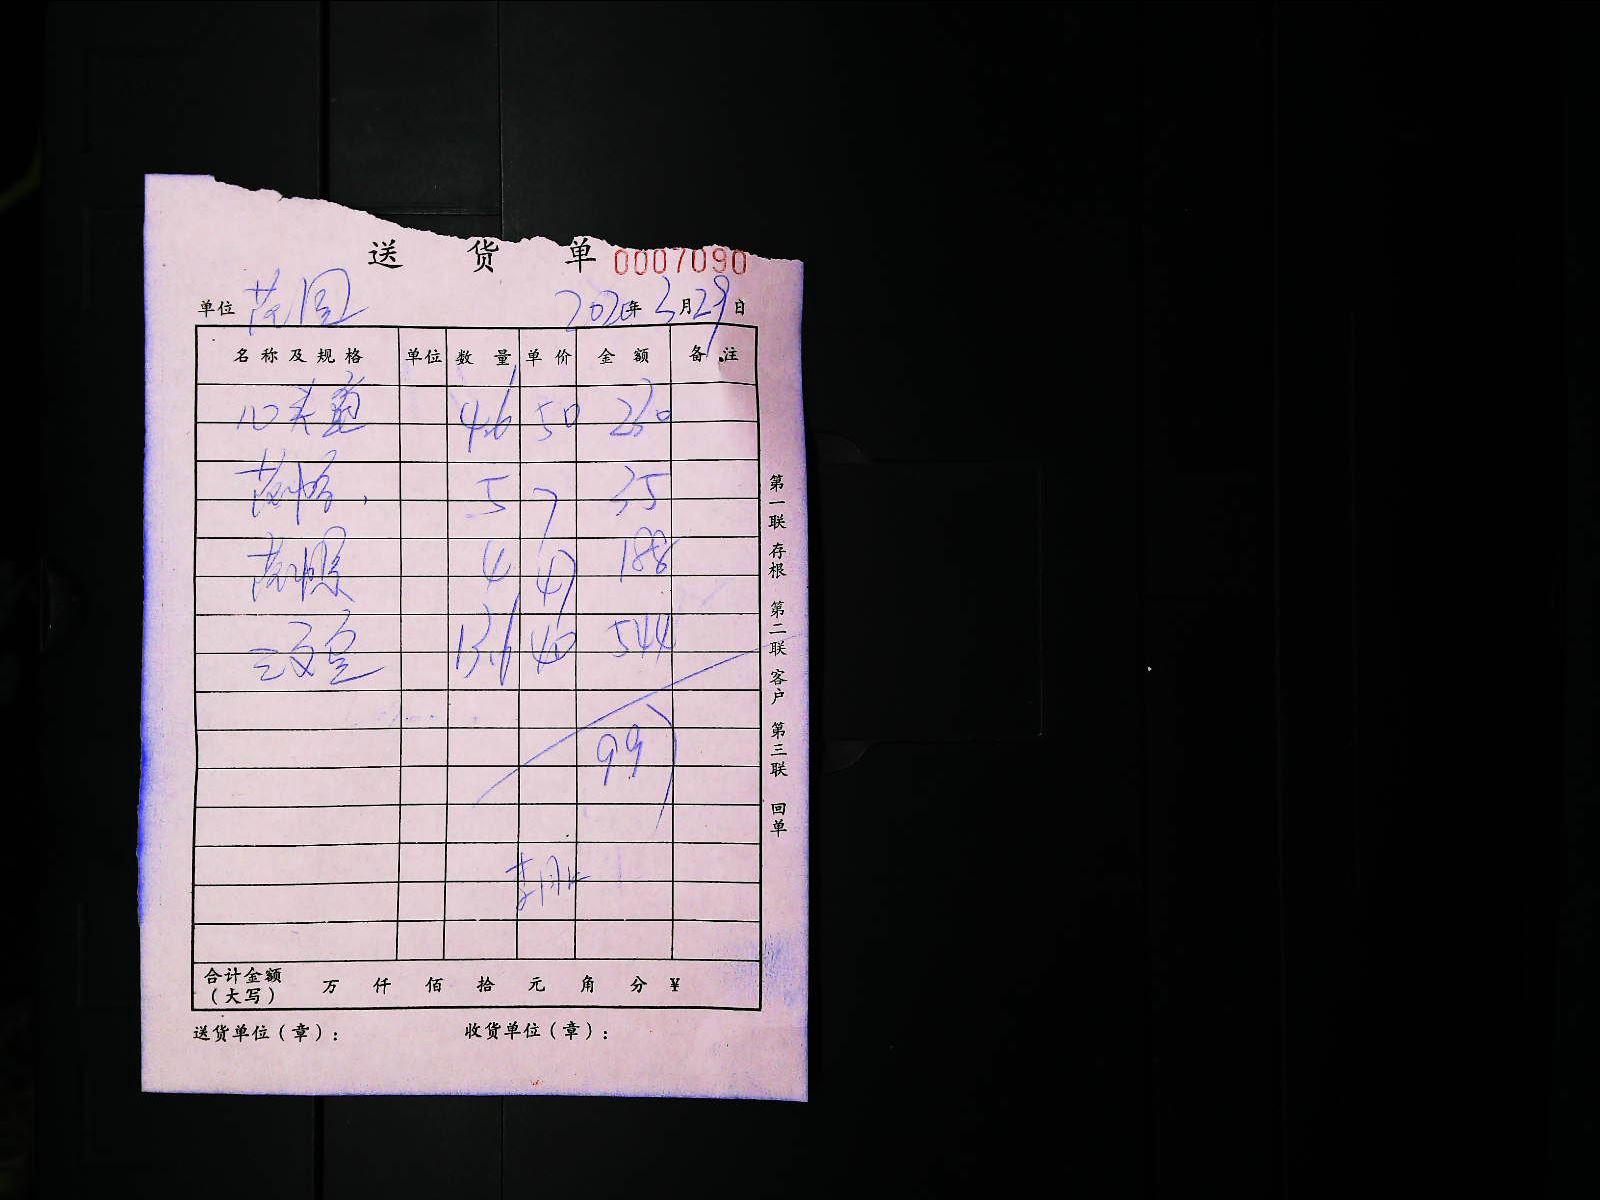 送 货 单 0007090
单位 2020年 3月29日
名称及规格 单位 数量 单价 金额 备注
4.6 50 230
5 7 35
4 47 188
三文鱼 13.6 40 544
997
合计金额(大写) 万 仟 佰 拾 元 角 分 ¥
送货单位(章): 收货单位(章):
第一联 存根 第二联 客户 第三联 回单